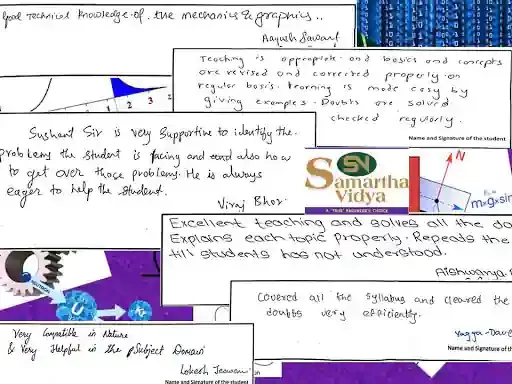 good technical knowledge of the mechanics & graphics..
Aayush Sawant
Teaching is appropriate and basics and concepts
are revised and corrected properly on
regular basis. Learning is made easy by
giving examples. Doubts are solved
checked regularly.
Name and Signature of the student
1 2 3
Sushant Sir is very supportive to identify the
problems the student is facing and also how
to get over those problems. He is always
eager to help the student.
Viraj Bhor
SN
Samartha
Vidya
A "TRUE" ENGINEER'S CHOICE
N
Excellent teaching and solves all the do
Explains each topic properly. Repeats the
till students has not understood.
Aishwarya
Covered all the syllabus and cleared the
doubts very efficiently.
Yagga Dave
Name and Signature of the
U
Kr
Very Compatible in Nature
& Very Helpful in the Subject Domain
Lokesh Jeswani
Name and Signature of the student